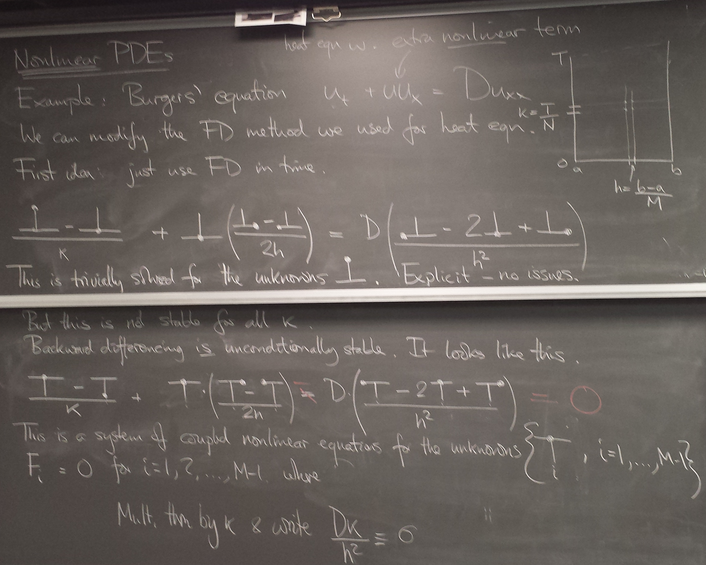 heat eqn w. extra nonlinear term
Nonlinear PDEs
Example: Burgers' equation u_t + uu_x = Du_xx
We can modify the FD method we used for heat eqn.
First idea: just use FD in time.
T
k = T/N
0 a b
h = (b-a)/M
⊥ - ⊥ / k + ⊥ (⊥ - ⊥ / 2h) = D (⊥ - 2⊥ + ⊥ / h²)
This is trivially solved for the unknowns ⊥. (Explicit - no issues.
But this is not stable for all k.
Backward differencing is unconditionally stable. It looks like this.
T - T / k + T · (T - T / 2h) - D · (T - 2T + T / h²) = 0
This is a system of coupled nonlinear equations for the unknowns { T i , i=1,...,M-1 }
F_i = 0 for i=1,2,...,M-1 where
Mult. thru by k & write Dk/h² ≡ σ